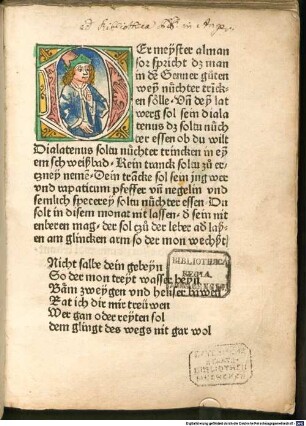 Er meyster alman
sor spricht dz man
in dē Genner guten
weÿ nüchter trick
en sölle · Vn̄ deÿ lat
werg sol sein diala
tenus dz soltu nüch
ter essen ob du wilt
Dialatenus soltu nüchter trincken in eÿ
em sch weißbad · Kein tranck soltu zů er
tzneÿ nemē · Dein trācke sol sein jng wer
vnd rapaticum pfeffer vn̄ negelin vnd
semlich specereÿ soltu nüchter essen · Du
solt in disem monat nit lassen · d sein nit
enberen mag · der sol tzů der leber ad laß
en am glincken arm so der mon wechßt
Nicht salbe dein gebeyn
So der mon treÿt wasser beÿn
Bäm zweÿgen vnd heüser bawen
Rat ich dir mit treüwen
Wer gan oder reÿten sol
dem glingt des wegs nit gar wol
BIBLIOTHECA
REGIA
MONACENSIS
BAYERISCHE
STAATS-
BIBLIOTHEK
MUENCHEN